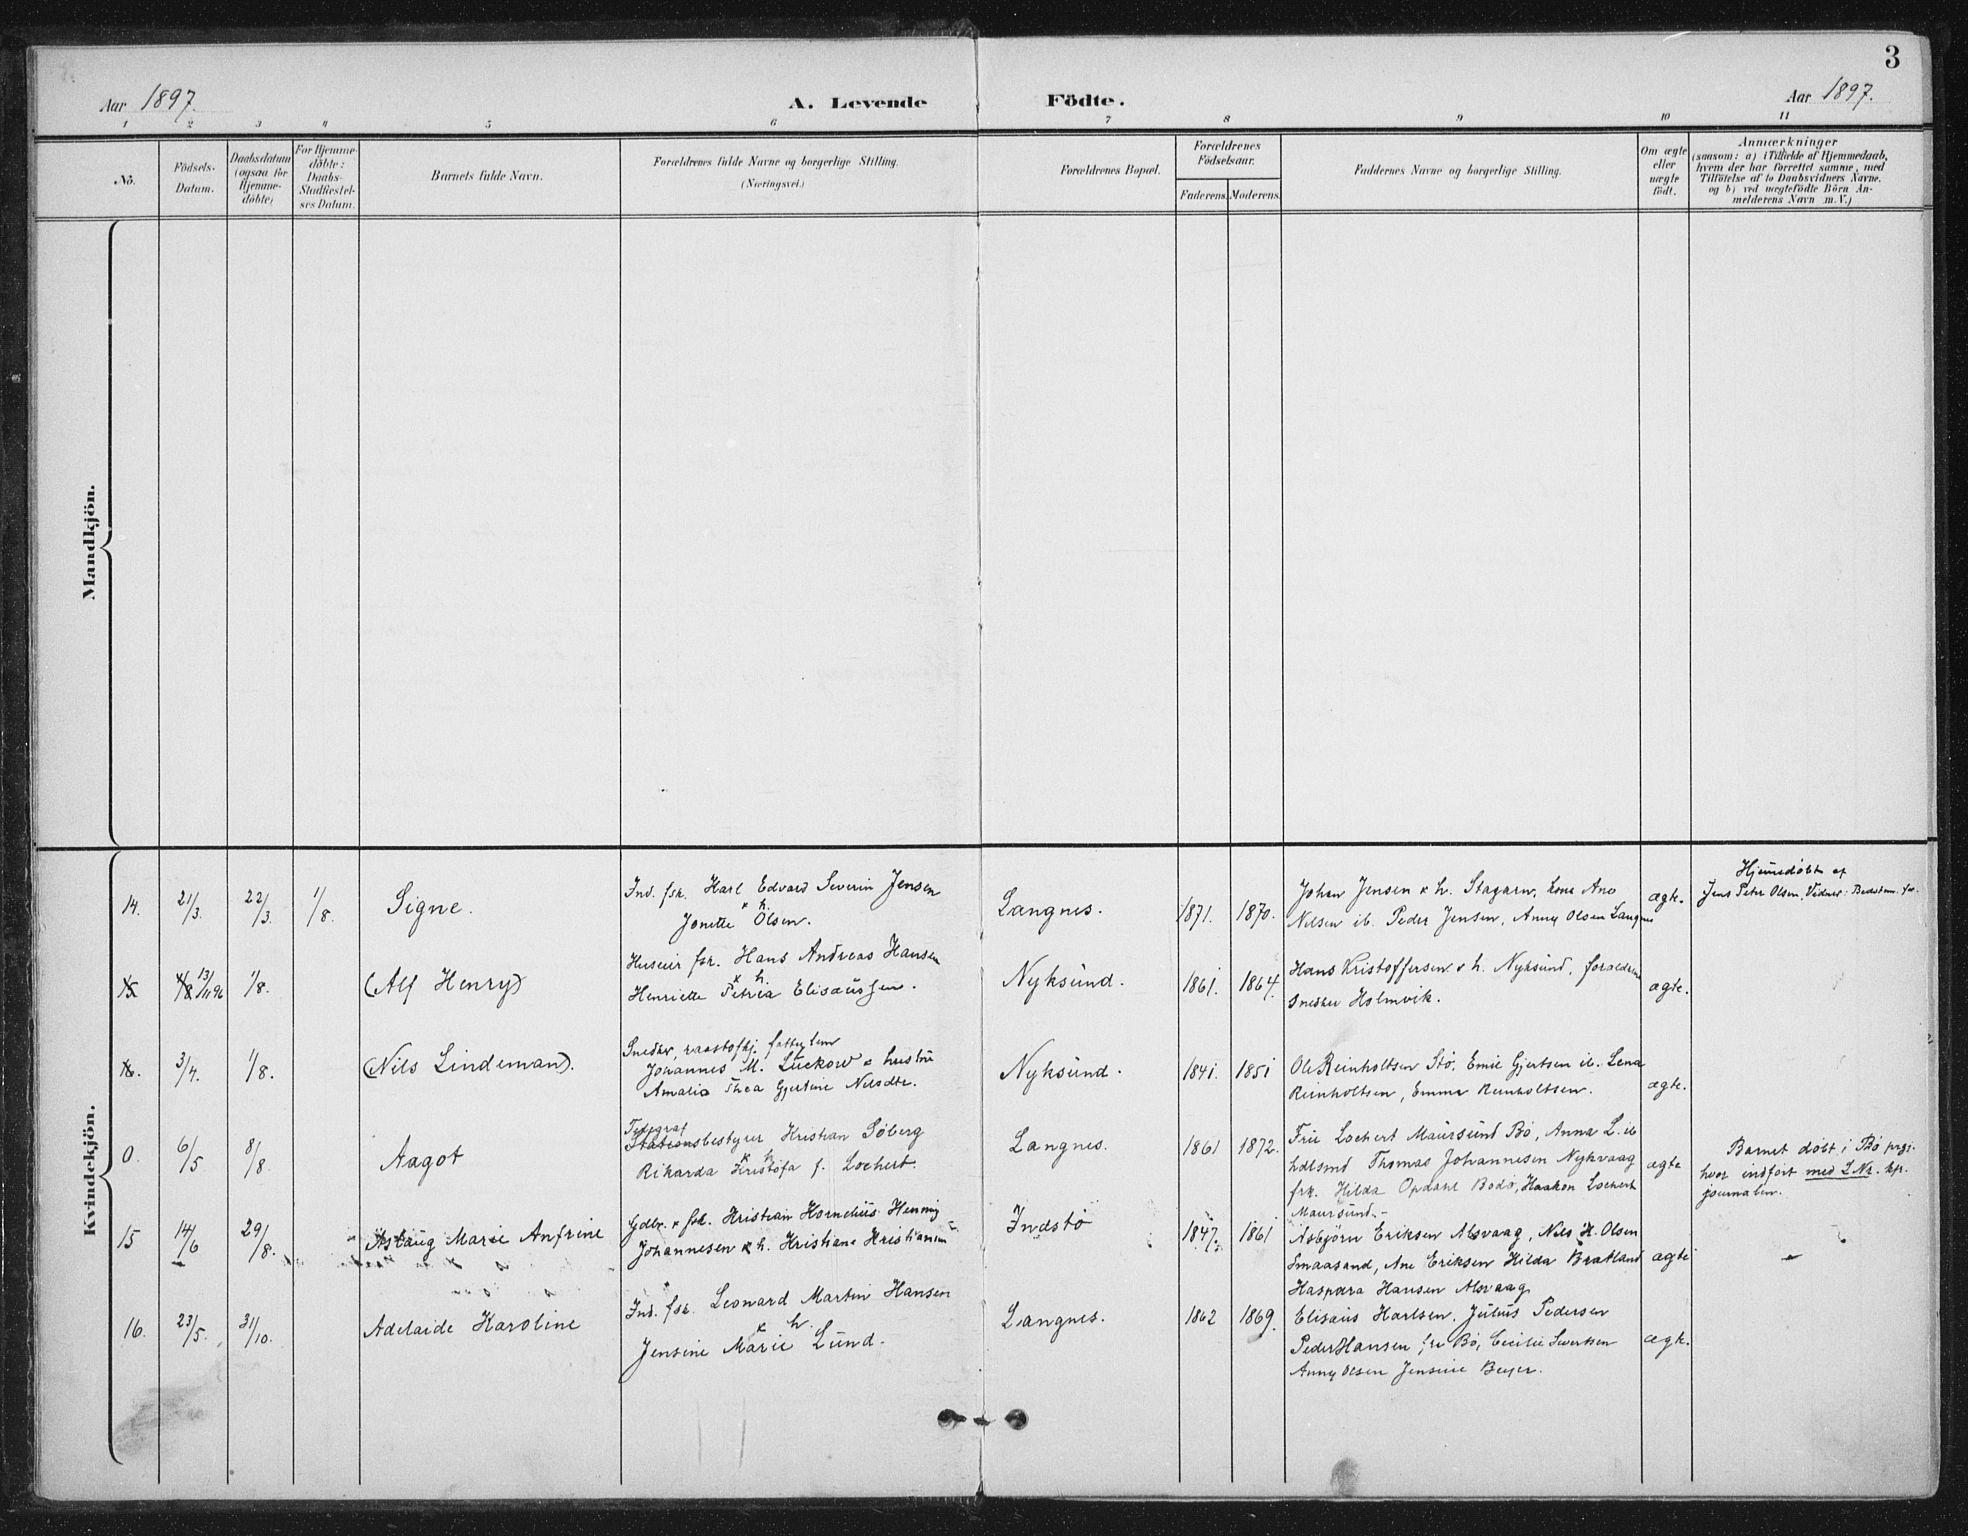 3
Aar 1897.
A. Levende Födte.
Aar 1897.
1 2 3 4 5 6 7 8 9 10 11
No.
Födsels-
Datum.
Daabsdatum
(ogsaa for
Hjemme-
döbte)
For Hjemme-
döbte:
Daabs-
Stadfæstel-
ses Datum.
Barnets fulde Navn.
Forældrenes fulde Navne og borgerlige Stilling.
(Næringsvei.)
Forældrenes Bopæl.
Forældrenes
Födselsaar.
Faderens. Moderens.
Faddernes Navne og borgerlige Stilling.
Om ægte
eller
uægte
födt.
Anmærkninger
(saasom: a) i Tilfælde af Hjemmedaab,
hvem der har forrettet samme, med
Tilföielse af to Daabsvidners Navne.
og b) ved uægtefödte Börn An-
melderens Navn m. V.)
Mandkjön.
Kvindekjön.
14. 21/3. 22/3. 1/8. Signe.
Ind. fsk. Karl Edvard Severin Jensen
& h.
Jonette Olsen.
Langnes. 1871. 1870.
Johan Jensen & h. Ano
Nilsen ib. Peder Jensen, Anna Olsen Langnes
ægte.
Hjemedøbt af
Jens Peter Olsen, Vidner:
15 13/11 96 1/8. (Alf Henry)
Huseier fsk. Hans Andreas Hansen
& h.
Henriette Petria Elisæussen.
Nyksund. 1861. 1864.
Hans Kristoffersen & h. Nyksund, forældrene
Snedker Holmvik.
ægte.
16. 3/4. 1/8. (Nils Lindeman).
Snedker,
Johannes M. Lückow & hustru
Amalia Thea Gjertine Nilsdtr.
Nyksund. 1841. 1851
Ole Reinholtsen Stø, Emil Gjertsen ib. Lena
Reinholtsen, Emma Reinholtsen.
ægte.
0. 6/5 8/8 Aagot
Telegraf
Stationsbestyrer Kristian Söberg
& h.
Rikarda Kristofa f. Lochert.
Langnes. 1861 1872.
Frü Lochert Maursund Bø, Anna L. ib
hdlsmd Thomas Johannesen Nykvaag
frk. Hilda Opdahl Bodø, Haakon Lochert
Maursund.
ægte
Barnet døbt i Bø prgj.
hvor indført med L Nr. kp.
journalen.
15 14/6 29/8. Aslaug Marie Anfrine
Gdbr. & fsk. Kristian Kornelius Henning
Johannesen & h. Kristiane
Indstø 1847. 1861
Asbjörn Eriksen Alsvaag, Nils K. Olsen
Smaasand, Ane Eriksen Hilda Bratland
Kaspara Hansen Alsvaag
ægte
16. 23/5. 31/10. Adelaide Karoline
Ind. fsk. Leonard Martin Hansen
& h.
Jensine Marie Lund.
Langnes. 1862 1869.
Elisæus Karlsen, Julius Pedersen
Peder Hansen fra Bø, Cecilie Sivertsen
Anna Olsen Jensine Beyer.
ægte.